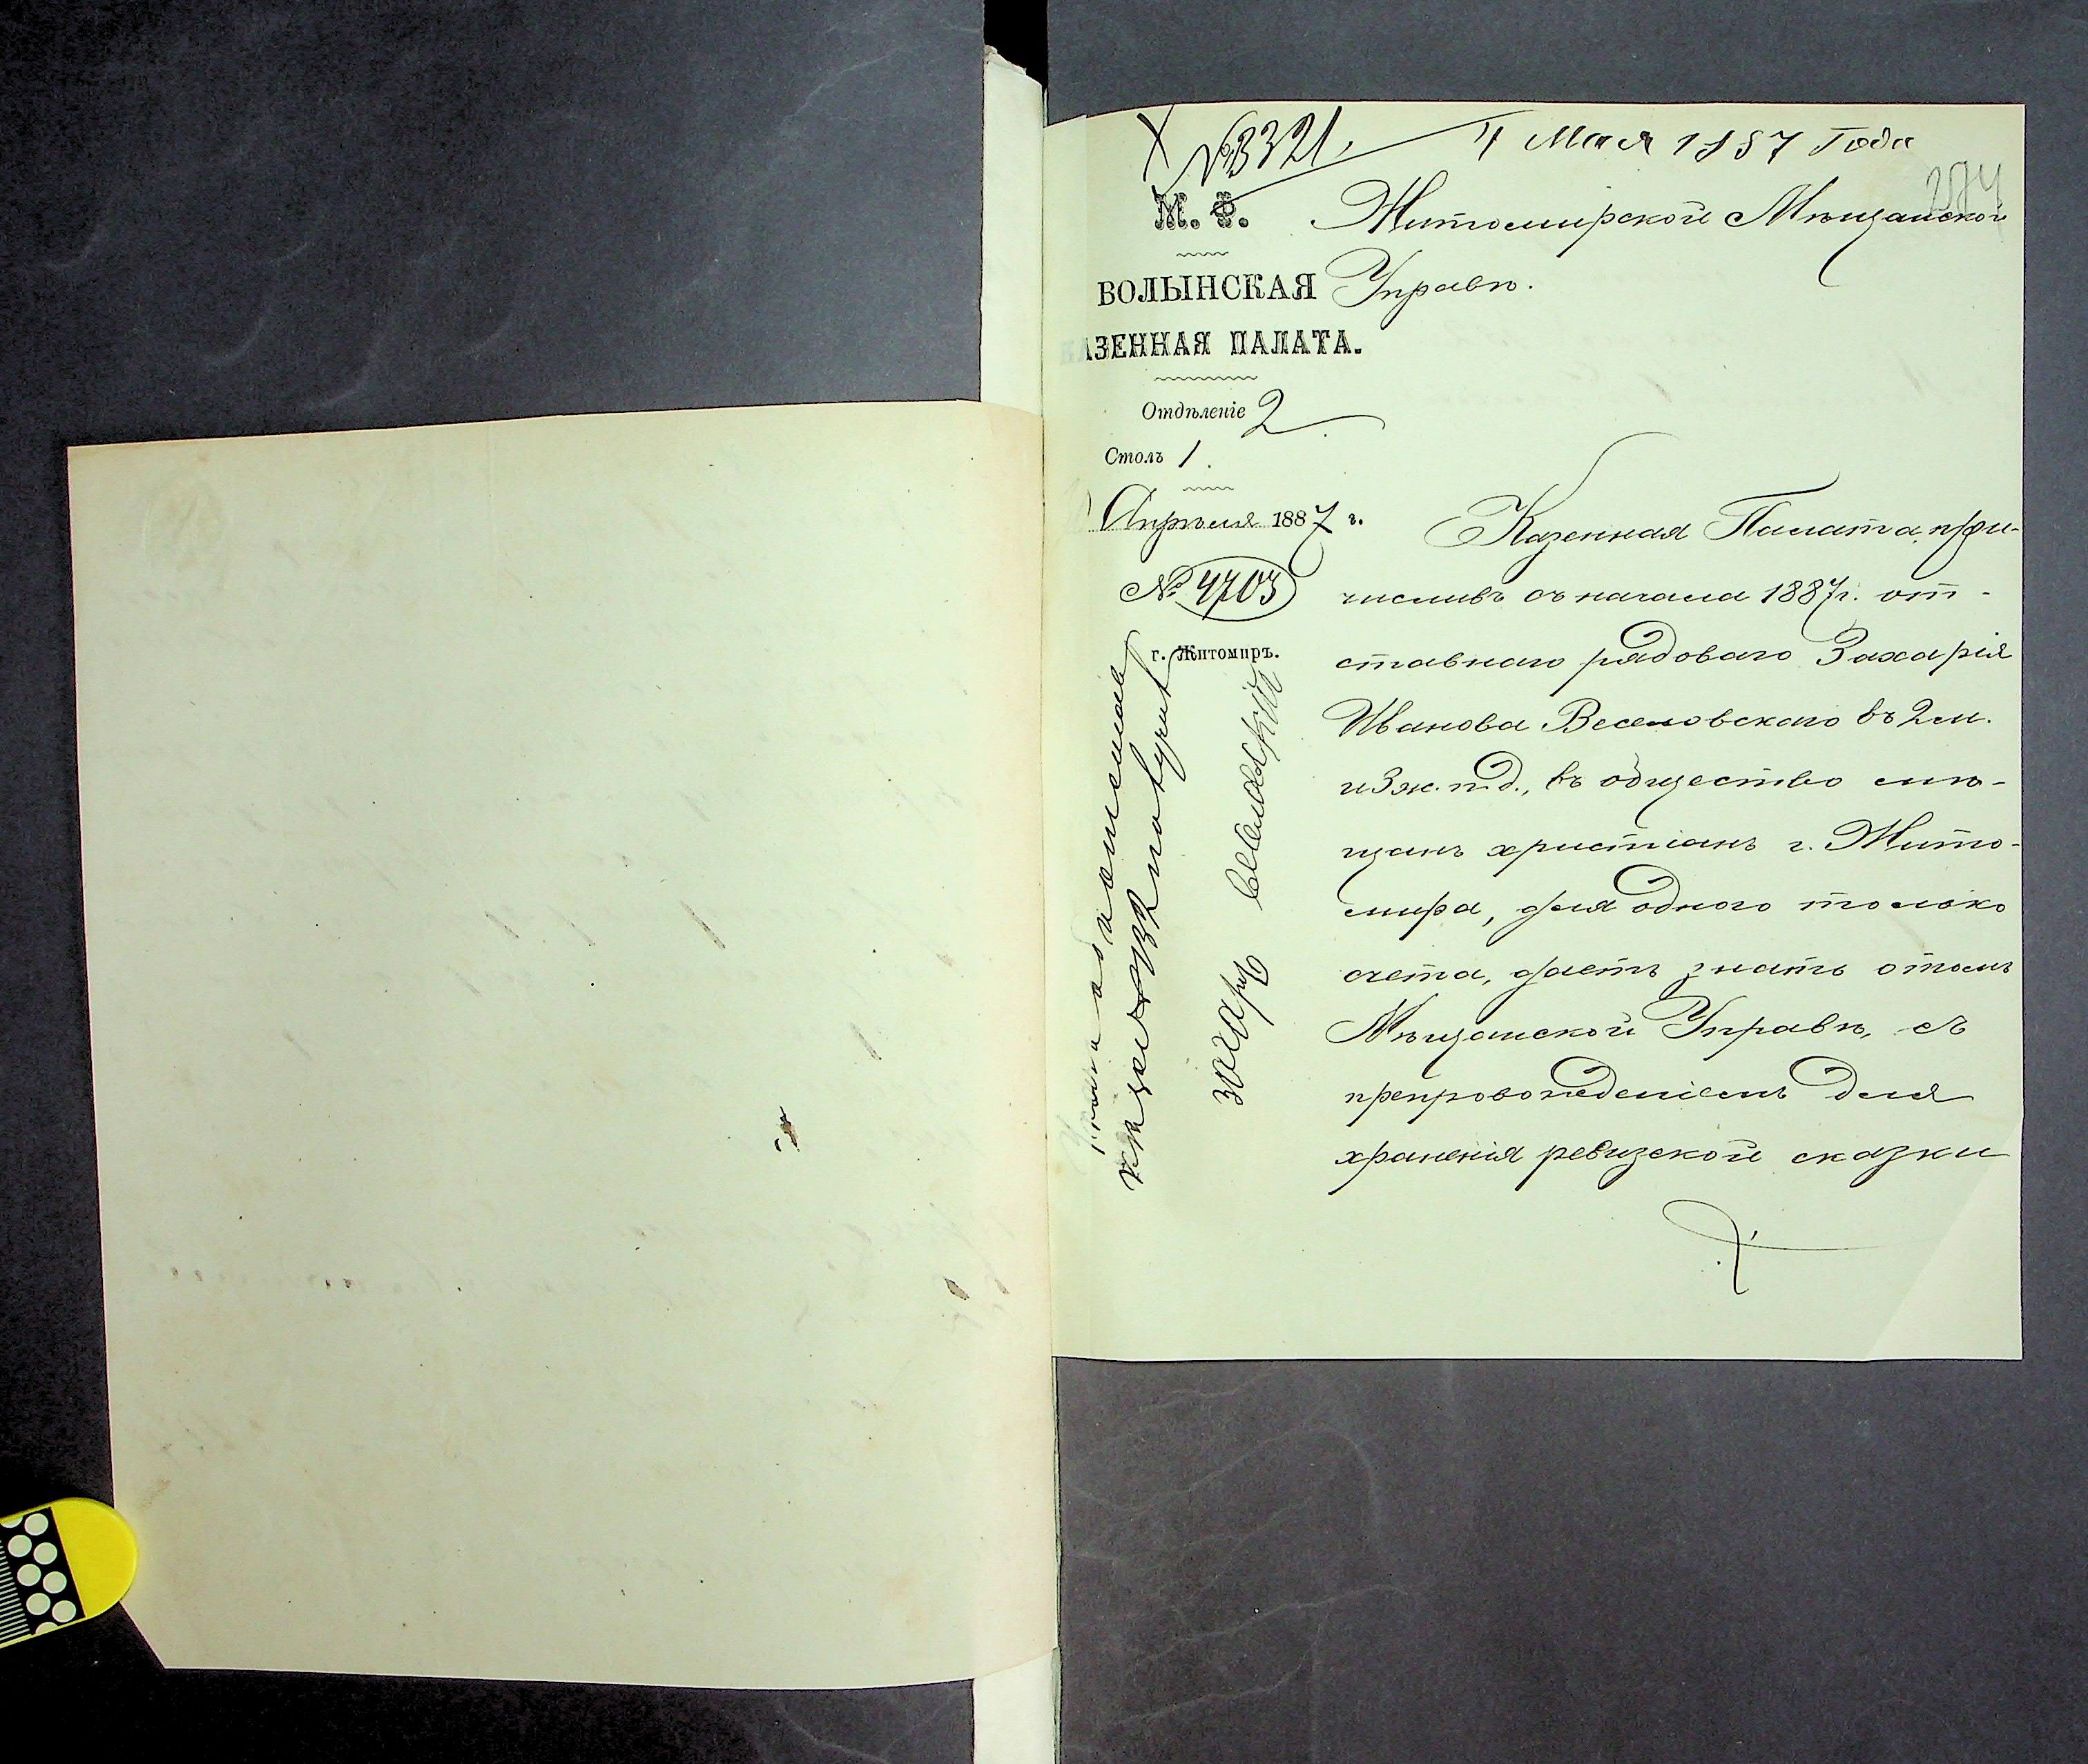 № 3321.
4 Мая 1887 Года
М. Ф.
ВОЛЫНСКАЯ
КАЗЕННАЯ ПАЛАТА.
Отдѣленіе 2
Столъ 1.
Апрѣля 1887 г.
№ 4703
г. Житомиръ.
Житомирской Мѣщанской
Управѣ.
Казенная Палата, при-
числивъ съ начала 1887 г. от-
ставнаго рядоваго Захарія
Иванова Веселовскаго въ 2 м.
и 3 ж. п. д., въ общество мѣ-
щанъ христіанъ г. Жито-
мира, для одного только
счета, даетъ знать о томъ
Мѣщанской Управѣ, съ
препровожденіемъ для
храненія ревизской сказки
получилъ
Захаръ Веселовскій